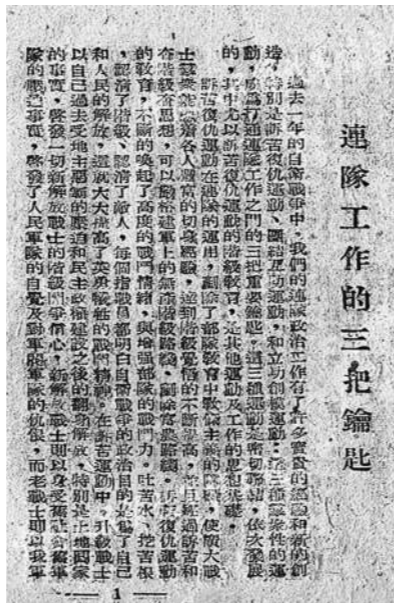 連隊工作的三把鑰匙
過去一年的自衛戰爭中，我們的連隊政治工作有了許多寶貴的經驗和新的創
造，特別是訴苦復仇運動、團結互助運動，和立功創模運動；這三種羣衆性的運
動，成爲打通連隊工作之門的三把重要鑰匙。這三種運動是密切聯結，依次發展
的，其中尤以訴苦復仇運動的階級教育，是其他運動及工作的思想基礎。
訴苦復仇運動在連隊的運用，剷除了部隊教育中教條主義的
士羣衆能 着各人豐富的切身經驗，達到階級覺悟的不斷提高，並且經過訴苦和
查階級查思想，可以嚴格建軍上的無產階級路綫，剷除富農路綫。訴苦復仇運動
的教育，不斷的喚起了高度的戰鬥情緒，與增强部隊的戰鬥力。吐苦水、挖苦根
，認清了階級、認清了敵人，每個指戰員都明白自衛戰爭的政治目的是爲了自己
和人民的解放，這就大大提高了英勇犧牲的戰鬥精神。在訴苦運動中，升級戰士
以自己過去受地主惡霸的壓迫和民主政權建設之後的翻身解放，特別是土地回家
的事實，啓發一切新解放戰士的階級鬥爭信心，新解放戰士則以身受舊社會舊軍
隊的壓迫事實，啓發了人民軍隊的自覺及對軍閥軍隊的仇恨，而老戰士則以我軍
1